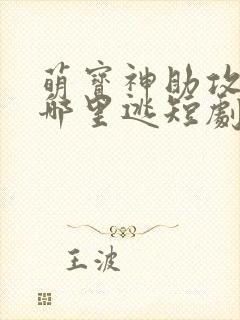 萌寶神助攻
哪里逃短劇
王波